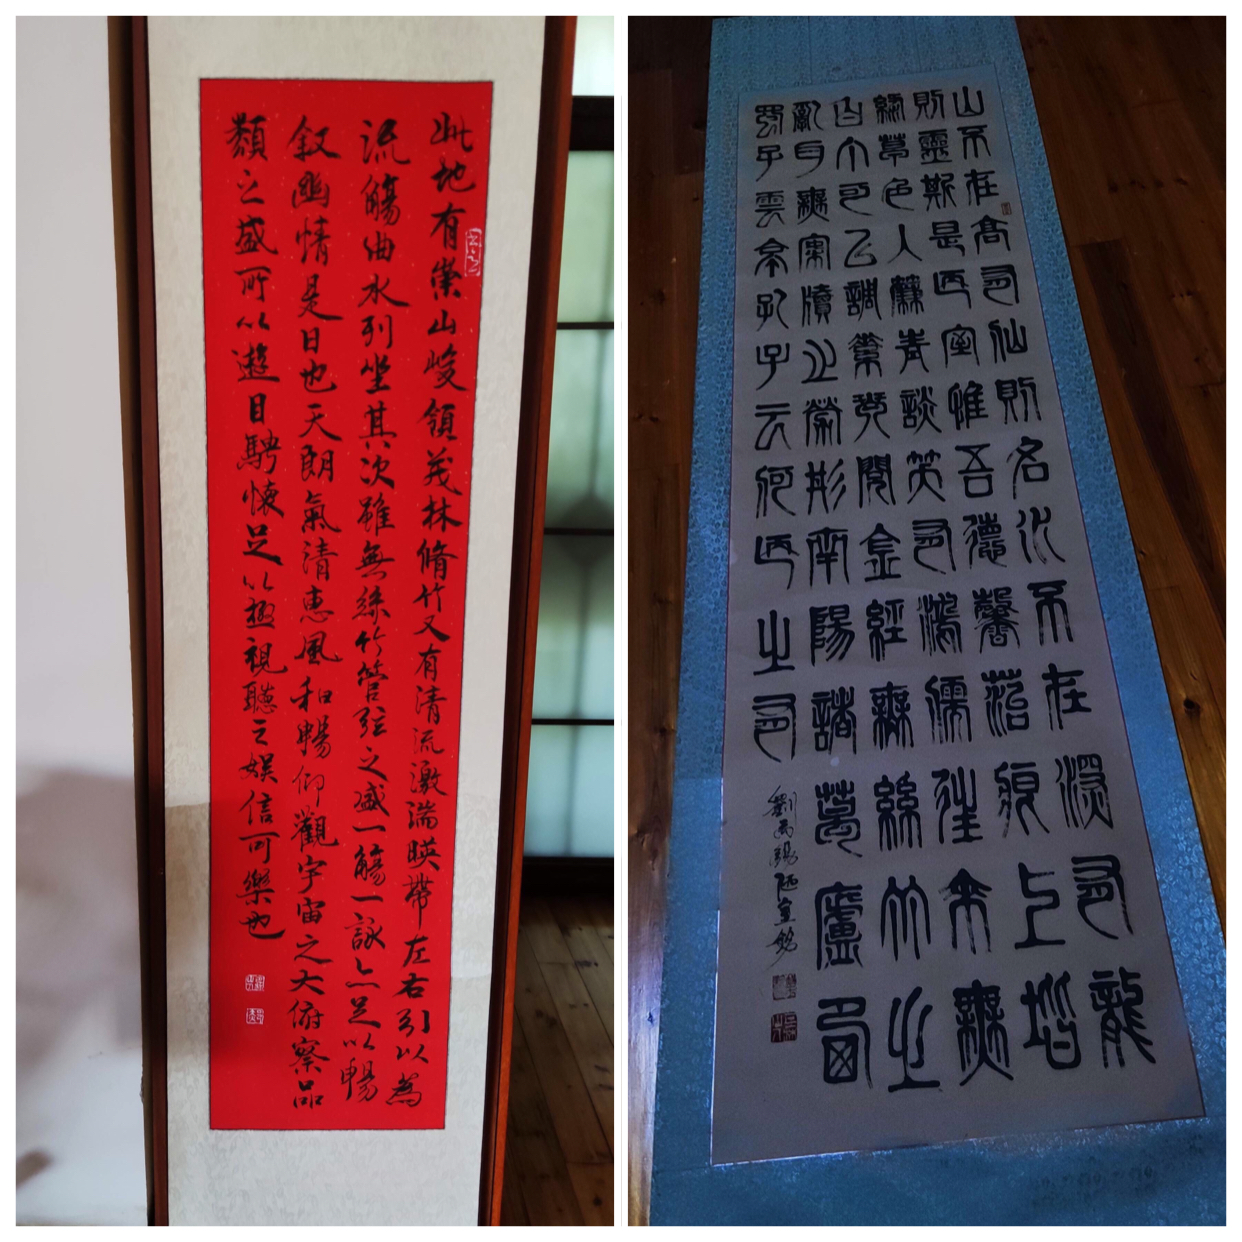 此地有崇山峻領茂林脩竹又有清流激湍暎帶左右引以為
流觴曲水列坐其次雖無絲竹管弦之盛一觴一詠亦足以暢
叙幽情是日也天朗氣清惠風和暢仰觀宇宙之大俯察品
類之盛所以遊目騁懷足以極視聽之娛信可樂也
山不在高有仙則名水不在深有龍
則靈斯是陋室惟吾德馨苔痕上堦
綠草色入簾青談笑有鴻儒往來無
白丁可以調素琴閱金經無絲竹之
亂耳無案牘之勞形南陽諸葛廬西
蜀子雲亭孔子云何陋之有
劉禹錫陋室銘